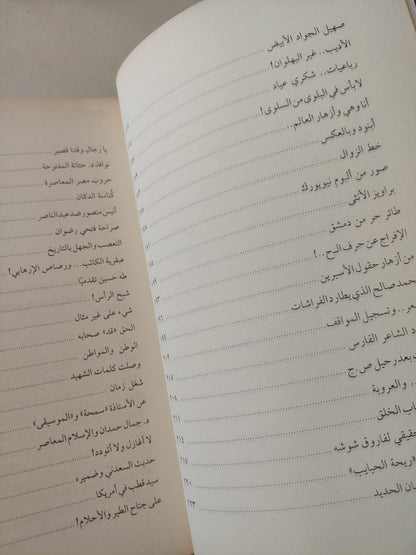 صهيل الجواد الأبيض
الأديب.. غير البهلوان!
رباعيات.. شكري عياد
لا بأس في البلوى من السلوى!
أنا وهي وأزهار العالم..
أبنود وبالعكس
خط الزوال
صور من ألبوم نيويورك
براويز الأنثى
طائر حر من دمشق
الإفراج عن حرف الـح..!
من أزهار حقول الأسبرين
محمد صالح الذي يطارد الفراشات
.. وتسجيل المواقف
الشاعر الفارس ٢٠٢
بعد رحيل ص.ج ٢٠٥
والعروبة ٢٠٨
الخلق ٢١٤
لفاروق شوشه ٢١٧
«ريحة الحبايب» ٢٢٠
الحديد ٢٢٣
يا رجال وقتنا قصير
نوافذ د. حتاتة المفتوحة
حروب مصر المعاصرة
كناسة الدكان
أنيس منصور ضد عبد الناصر
صراحة فتحي رضوان
التعصب والجهل بالتاريخ
عبقرية الكاتب.. ورصاص الإرهابي!
طه حسين تقدميًا
شبح الرأس!
شيء على غير مثال
الحق «قد» صحابه
الوطن والمواطن
وصلت كلمات الشهيد
شغل زمان
عن الأستاذة «سمحة» و«الموسيقى»
د. جمال حمدان والإسلام المعاصر
لا أغازل ولا أتودد!
حديث السعدني وضميره
سيد قطب في أمريكا
على جناح الطير والأحلام!